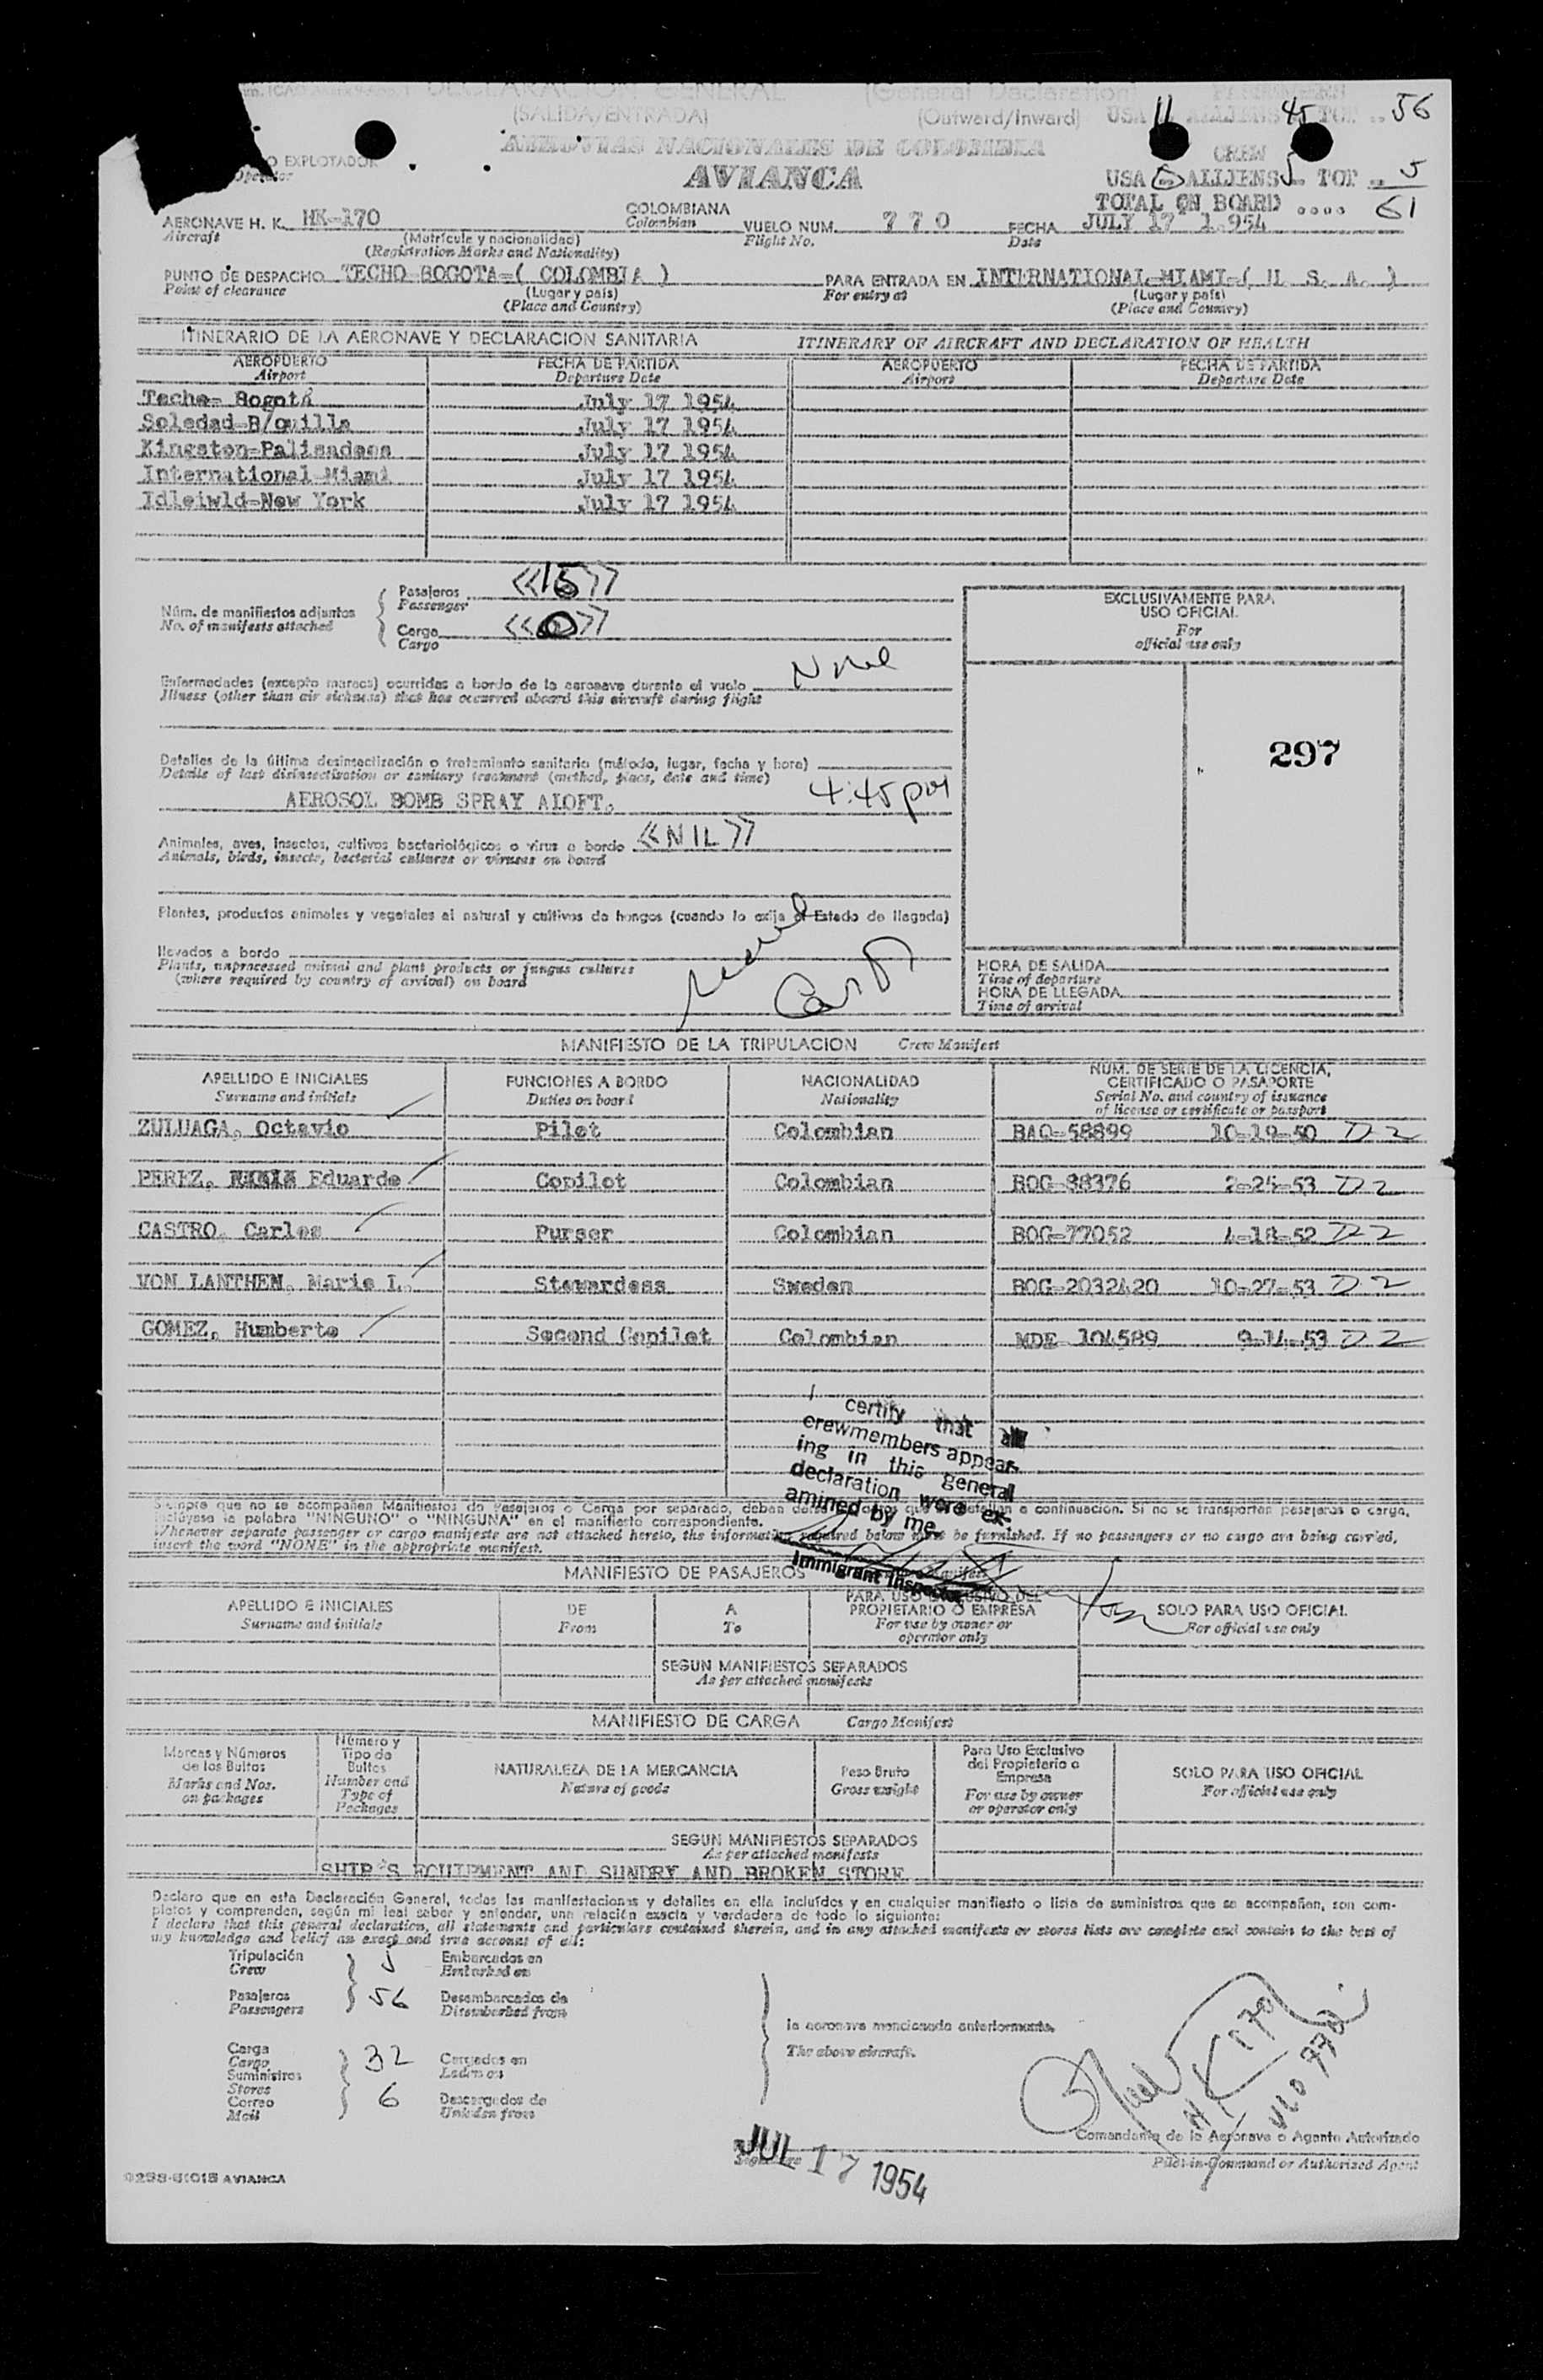 DECLARACION GENERAL (General Declaration) PASSENGERS
(SALIDA/ENTRADA) (Outward/Inward) USA 11 ALLIENS 45 TOT .. 56
AEROVIAS NACIONALES DE COLOMBIA
EXPLOTADOR CREW
Operator AVIANCA USA 0 ALLIENS 5 TOT .. 5
TOTAL ON BOARD .... 61
AERONAVE H. K. HK-170 COLOMBIANA VUELO NUM. 7 7 0 FECHA JULY 17 1.954
Aircraft (Matrícula y nacionalidad) Colombian Flight No. Date
(Registration Marks and Nationality)
PUNTO DE DESPACHO TECHO-BOGOTA-( COLOMBIA ) PARA ENTRADA EN INTERNATIONAL-MIAMI-( U. S. A. )
Point of clearance (Lugar y país) For entry at (Lugar y país)
(Place and Country) (Place and Country)
ITINERARIO DE LA AERONAVE Y DECLARACION SANITARIA ITINERARY OF AIRCRAFT AND DECLARATION OF HEALTH
AEROPUERTO FECHA DE PARTIDA AEROPUERTO FECHA DE PARTIDA
Airport Departure Date Airport Departure Date
Techo- Bogotá July 17 1954
Soledad-B/quilla July 17 1954
Kingston-Palisadoes July 17 1954
International-Miami July 17 1954
Idleiwld-New York July 17 1954
Pasajeros <<15>>
Passenger
Núm. de manifiestos adjuntos
No. of manifests attached
Carga <<0>>
Cargo
EXCLUSIVAMENTE PARA
USO OFICIAL
For
official use only
Enfermedades (excepto mareos) ocurridas a bordo de la aeronave durante el vuelo None
Illness (other than air sickness) that has occurred aboard this aircraft during flight
297
Detalles de la última desinsectización o tratamiento sanitario (método, lugar, fecha y hora)
Details of last disinsectization or sanitary treatment (method, place, date and time)
AEROSOL BOMB SPRAY ALOFT. 4:45 pm
Animales, aves, insectos, cultivos bacteriológicos o virus a bordo <<NIL>>
Animals, birds, insects, bacterial cultures or viruses on board
Plantas, productos animales y vegetales al natural y cultivos de hongos (cuando lo exija el Estado de llegada)
llevados a bordo
Plants, unprocessed animal and plant products or fungus cultures
(where required by country of arrival) on board
HORA DE SALIDA
Time of departure
HORA DE LLEGADA
Time of arrival
MANIFIESTO DE LA TRIPULACION Crew Manifest
APELLIDO E INICIALES FUNCIONES A BORDO NACIONALIDAD NUM. DE SERIE DE LA LICENCIA,
CERTIFICADO O PASAPORTE
Surname and initials Duties on board Nationality Serial No. and country of issuance
of license or certificate or passport
ZULUAGA, Octavio Pilot Colombian BAQ-58899 10-19-50 D2
PEREZ, Eduardo Copilot Colombian BOG-88376 2-25-53 D2
CASTRO, Carlos Purser Colombian BOG-77052 4-18-52 D2
VON LANTHEN, Marie I. Stewardess Sweden BOG-2032420 10-27-53 D2
GOMEZ, Humberto Second Copilot Colombian MDE 104589 9-14-53 D2
I certify that all
crewmembers appear-
ing in this general
declaration were ex-
amined by me
Immigrant Inspector
Siempre que no se acompañen Manifiestos de Pasajeros o Carga por separado, deben que se detallan a continuación. Si no se transportan pasajeros o carga,
inclúyase la palabra "NINGUNO" o "NINGUNA" en el manifiesto correspondiente.
Whenever separate passenger or cargo manifests are not attached hereto, the information required below must be furnished. If no passengers or no cargo are being carried,
insert the word "NONE" in the appropriate manifest.
MANIFIESTO DE PASAJEROS
APELLIDO E INICIALES DE A PARA USO EXCLUSIVO DEL
PROPIETARIO O EMPRESA SOLO PARA USO OFICIAL
Surname and initials From To For use by owner or
operator only For official use only
SEGUN MANIFIESTOS SEPARADOS
As per attached manifests
MANIFIESTO DE CARGA Cargo Manifest
Marcas y Números
de los Bultos
Marks and Nos.
on packages
Número y
Tipo de
Bultos
Number and
Type of
Packages
NATURALEZA DE LA MERCANCIA
Nature of goods
Peso Bruto
Gross weight
Para Uso Exclusivo
del Propietario o
Empresa
For use by owner
or operator only
SOLO PARA USO OFICIAL
For official use only
SEGUN MANIFIESTOS SEPARADOS
As per attached manifests
SHIP'S EQUIPMENT AND SUNDRY AND BROKEN STORE
Declaro que en esta Declaración General, todas las manifestaciones y detalles en ella incluídos y en cualquier manifiesto o lista de suministros que se acompañan, son com-
pletos y comprenden, según mi leal saber y entender, una relación exacta y verdadera de todo lo siguiente:
I declare that this general declaration, all statements and particulars contained therein, and in any attached manifests or stores lists are complete and contain to the best of
my knowledge and belief an exact and true account of all:
Tripulación 5 Embarcados en
Crew Embarked on
Pasajeros 56 Desembarcados de
Passengers Disembarked from
la aeronave mencionada anteriormente.
The above aircraft.
Carga
Cargo 32 Cargados en
Suministros Laden on
Stores
Correo 6 Descargados de
Mail Unladen from
HK 170
VLO 770
Comandante de la Aeronave o Agente Autorizado
Signature
Pilot-in-Command or Authorized Agent
JUL 17 1954
0298-61018 AVIANCA